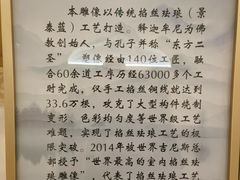 本雕像以传统掐丝珐琅（景
泰蓝）工艺打造。释迦牟尼为佛
教创始人，与孔子并称“东方二
圣”。塑像经由140位工匠，融
合60余道工序历经63000多个工
时完成，仅手工掐丝铜线就达到
33.6万根，攻克了大型构件烧制
变形、色彩均匀度等世界级工艺
难题，实现了掐丝珐琅工艺的极
限突破。2014年被世界吉尼斯总
部授予“世界最高的室内掐丝珐
琅雕像”，代表了掐丝珐琅工